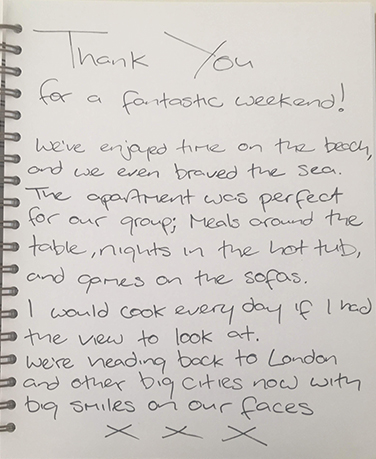 Thank You
for a fantastic weekend!
We've enjoyed time on the beach,
and we even braved the sea.
The apartment was perfect
for our group; Meals around the
table, nights in the hot tub,
and games on the sofas.
I would cook every day if I had
the view to look at.
We're heading back to London
and other big cities now with
big smiles on our faces
X X X